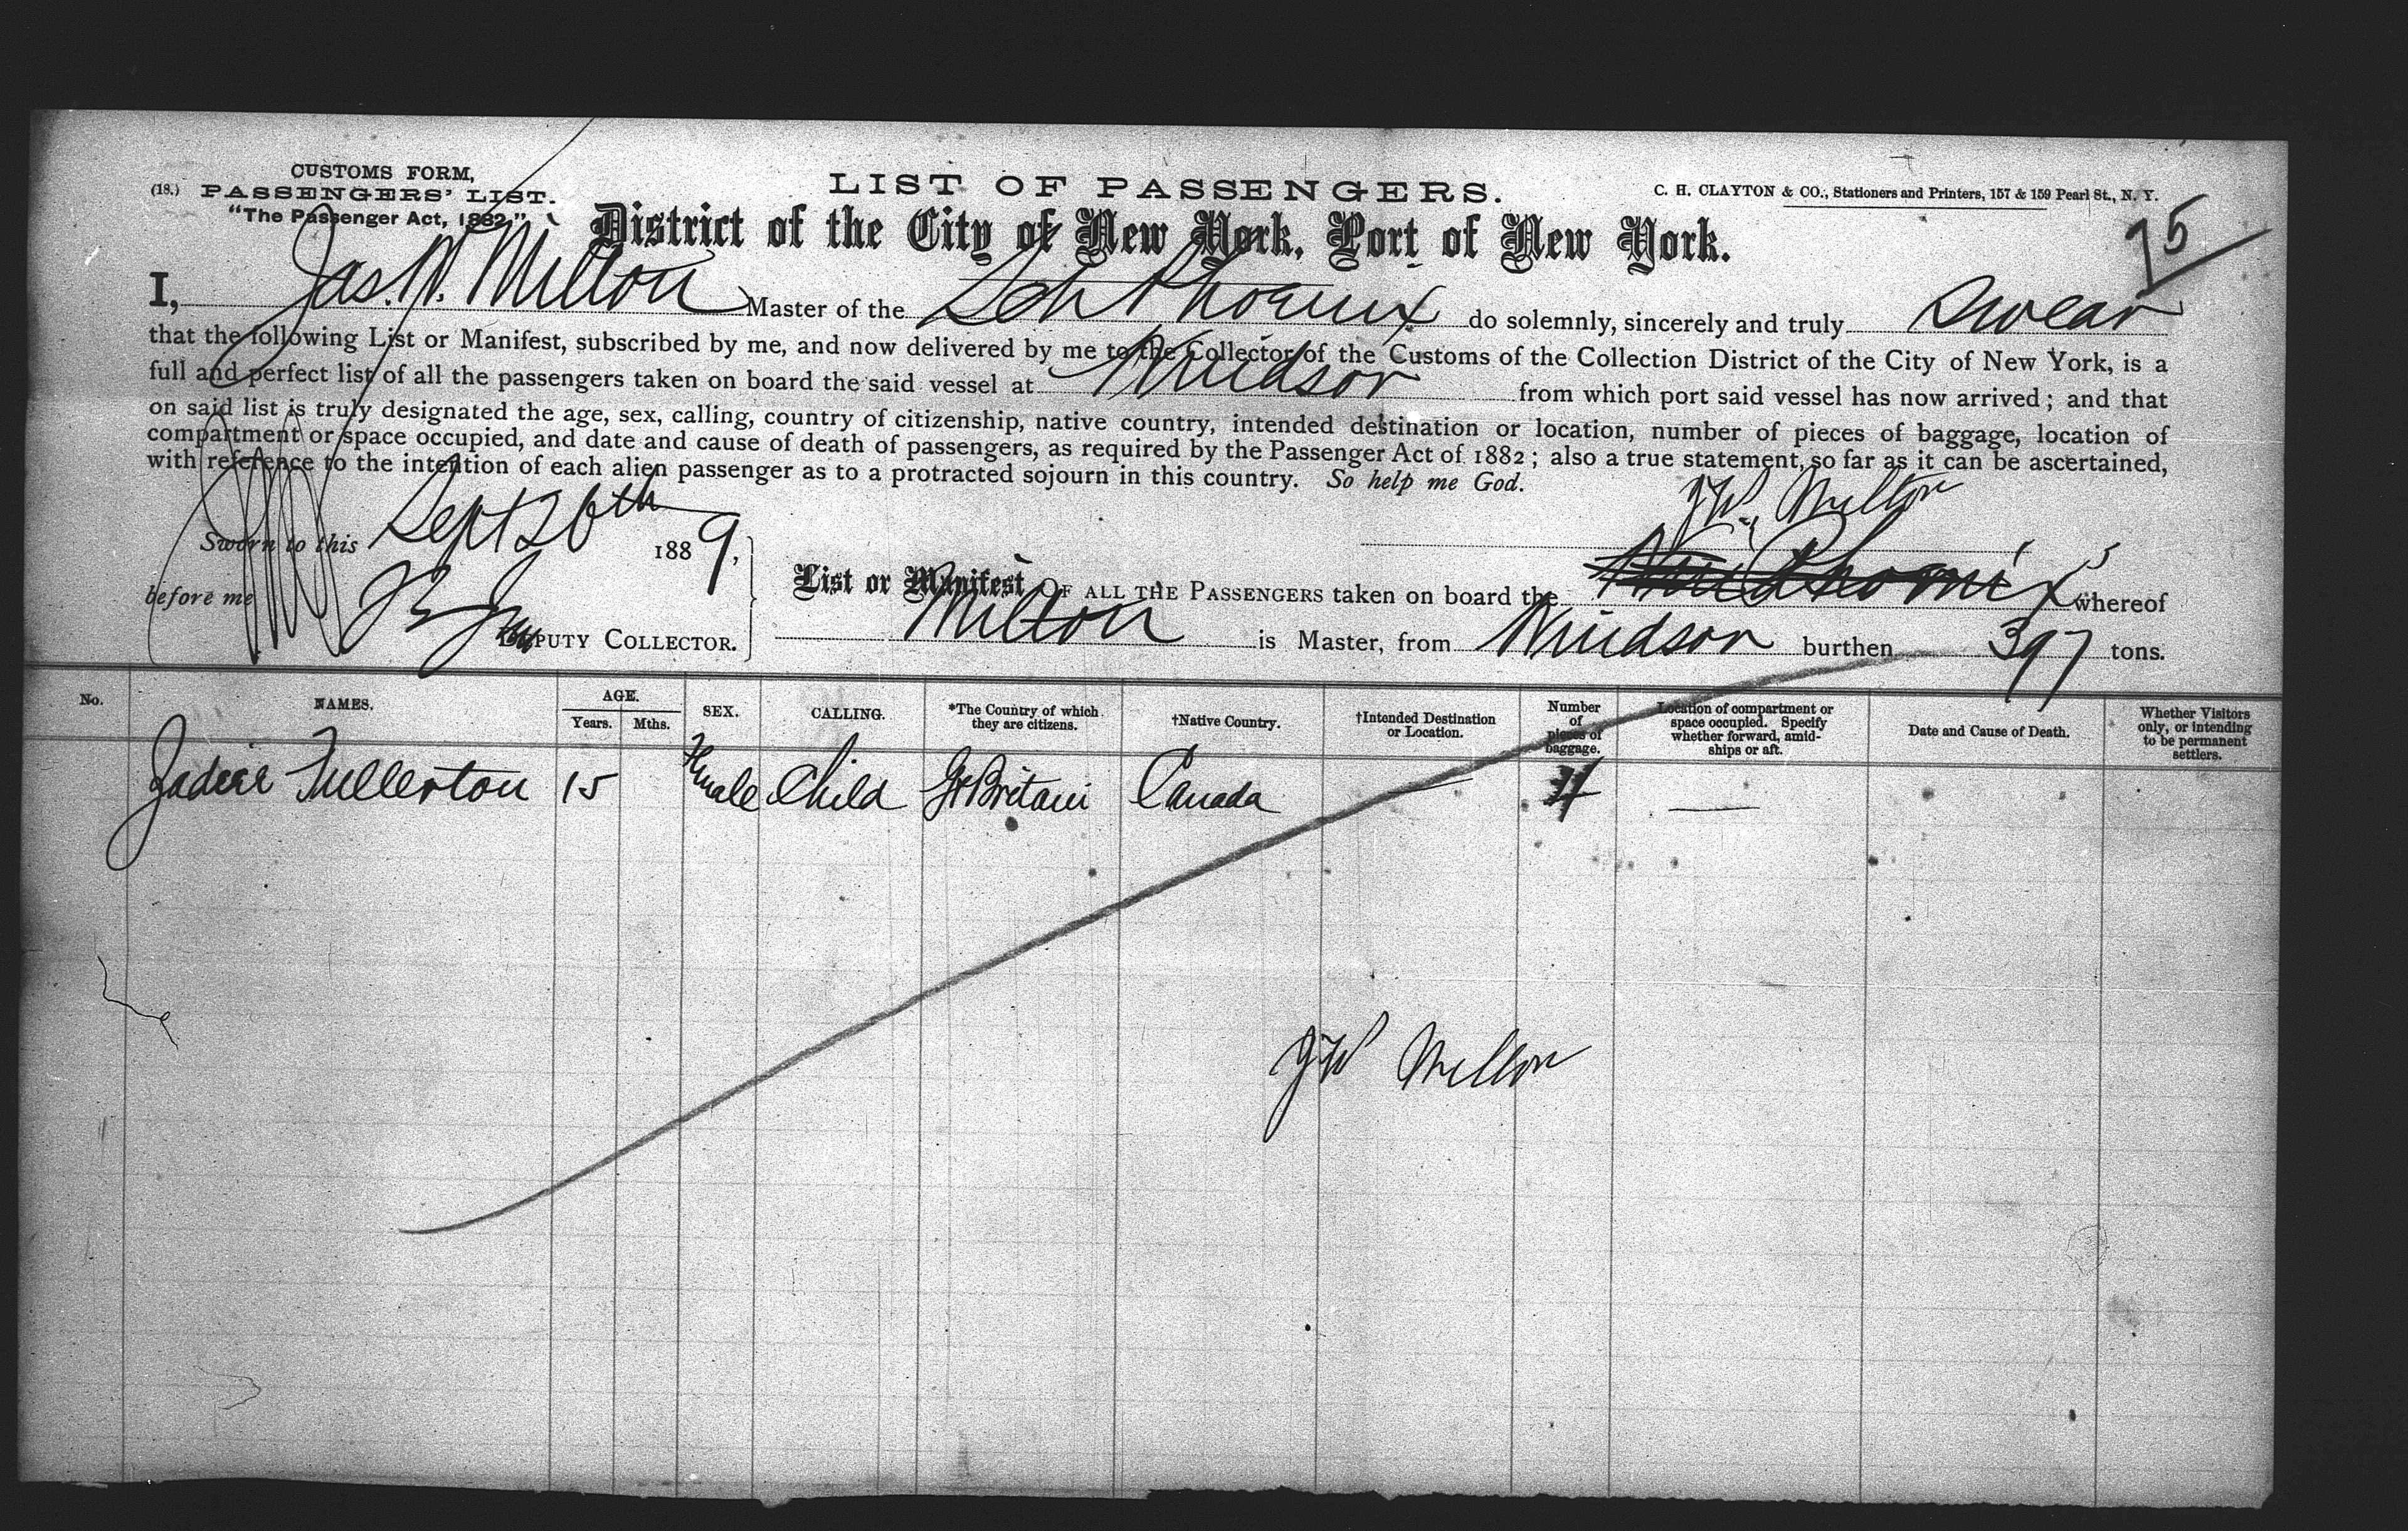 CUSTOMS FORM,
(18.) PASSENGERS' LIST.
"The Passenger Act, 1882."
LIST OF PASSENGERS.
C. H. CLAYTON & CO., Stationers and Printers, 157 & 159 Pearl St., N. Y.
75
District of the City of New York, Port of New York.
I, Jas. W. Milton Master of the Sch Phoenix do solemnly, sincerely and truly Swear
that the following List or Manifest, subscribed by me, and now delivered by me to the Collector of the Customs of the Collection District of the City of New York, is a
full and perfect list of all the passengers taken on board the said vessel at Windsor from which port said vessel has now arrived; and that
on said list is truly designated the age, sex, calling, country of citizenship, native country, intended destination or location, number of pieces of baggage, location of
compartment or space occupied, and date and cause of death of passengers, as required by the Passenger Act of 1882; also a true statement, so far as it can be ascertained,
with reference to the intention of each alien passenger as to a protracted sojourn in this country. So help me God.
J W Milton
Sworn to this Sept 26th 1889,
before me
DEPUTY COLLECTOR.
List or Manifest OF ALL THE PASSENGERS taken on board the Phoenix whereof
Milton is Master, from Windsor burthen 397 tons.
No. NAMES. AGE. Years. Mths. SEX. CALLING. *The Country of which they are citizens. †Native Country. †Intended Destination or Location. Number of pieces of baggage. Location of compartment or space occupied. Specify whether forward, amidships or aft. Date and Cause of Death. Whether Visitors only, or intending to be permanent settlers.
Fullerton 15 Female Child Gt Britain Canada
J W Milton